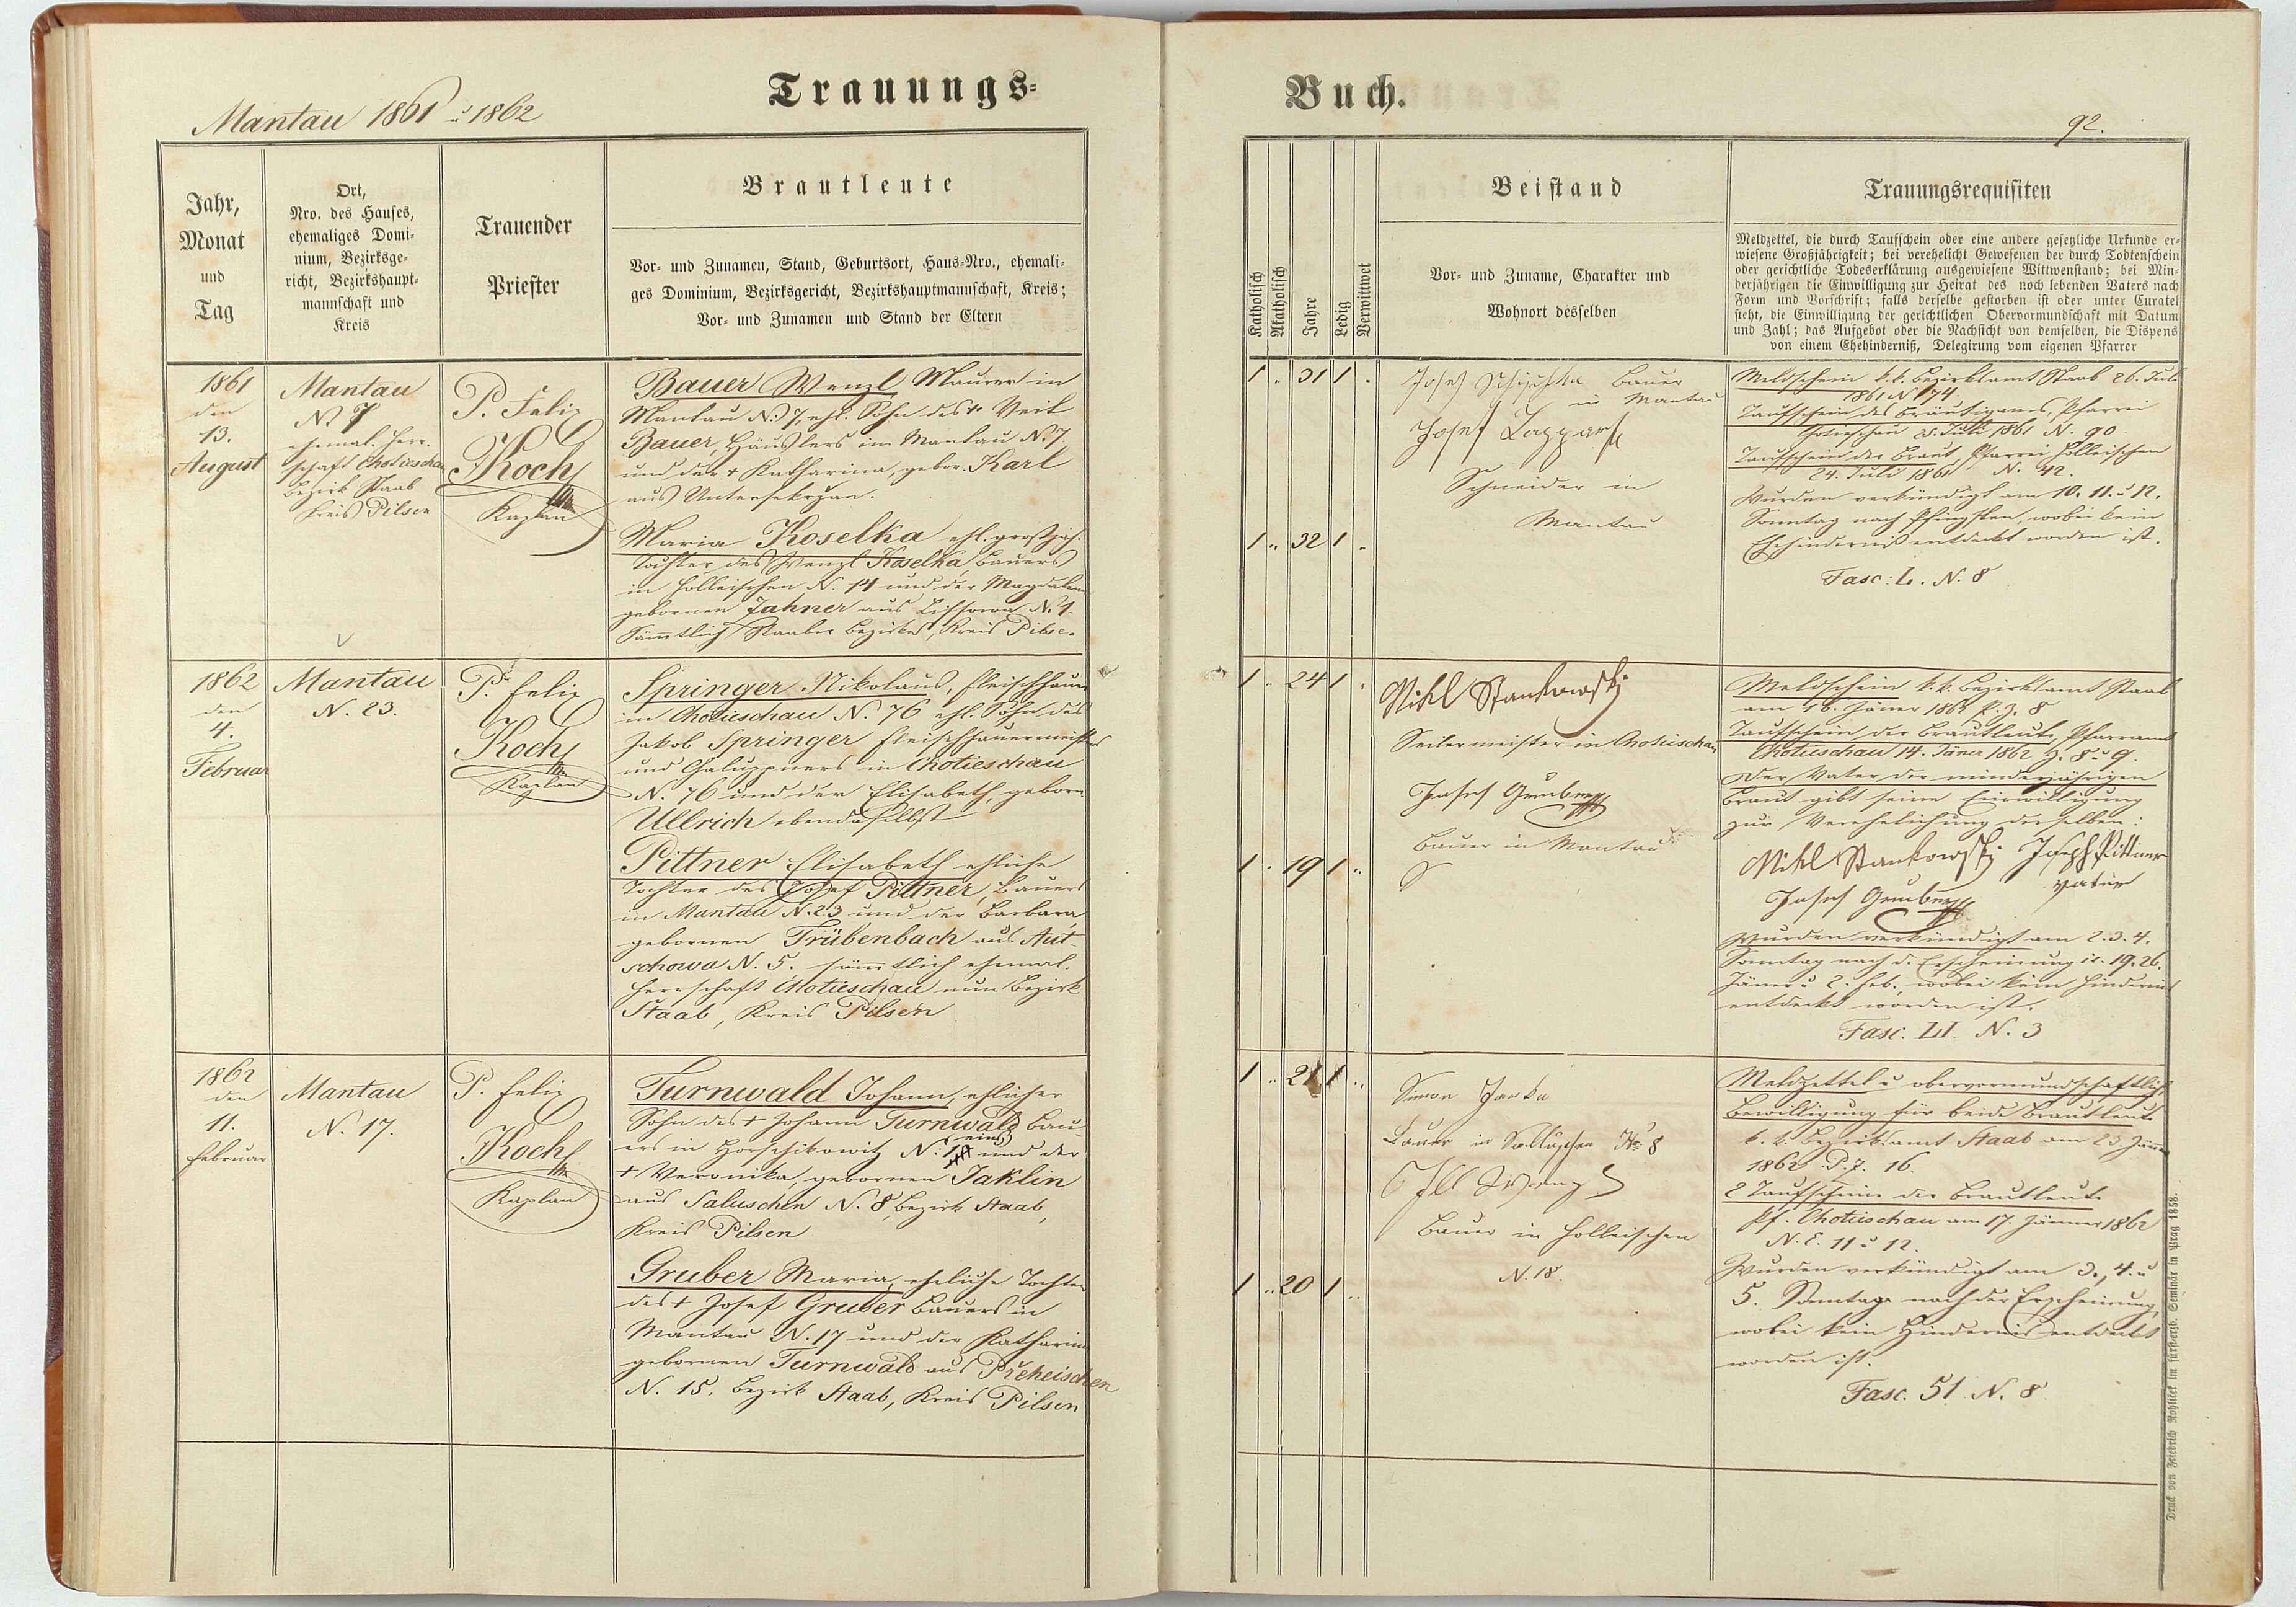 Mantau 1861 u 1862
Trauungs-
Jahr,
Monat
und
Tag
Ort,
Nro. des Hauses,
ehemaliges Domi-
nium, Bezirksge-
richt, Bezirkshaupt-
mannschaft und
Kreis
Trauender
Priester
Brautleute
Vor- und Zunamen, Stand, Geburtsort, Haus-Nro., ehemali-
ges Dominium, Bezirksgericht, Bezirkshauptmannschaft, Kreis;
Vor- und Zunamen und Stand der Eltern
1861
den
13.
August
Mantau
N. 7
ehemal. Herr-
schaft Chotieschau
Bezirk Staab
Kreis Pilsen
P. Felix
Koch
Kaplan
Bauer Wenzl Maurer in
Mantau N. 7, ehl. Sohn des + Veit
Bauer, Häuslers in Mantau N. 7.
und der + Katharina, gebor. Karl
aus Untersekrzan.
Maria Koselka ehl. großjäh.
Tochter des Wenzl Koselka, Bauers
in Holleischen N. 14 und der Magdalena
gebornen Jahner aus Lissowa N. 1.
Sämmtlich Staaber Bezirkes, Kreis Pilsen
1862
den
4.
Februar
Mantau
N. 23.
P. Felix
Koch
Kaplan
Springer Nikolaus, Fleischhauer
in Chotieschau N. 76 ehl. Sohn des
Jakob Springer Fleischhauermeisters
und Chaluppners in Chotieschau
N. 76 und der Elisabeth, geborn.
Ullrich ebendaselbst
Pittner Elisabeth ehliche
Tochter des Josef Pittner, Bauers
in Mantau N. 23 und der Barbara
gebornen Trübenbach aus Aut-
schowa N. 5. sämmtlich ehemal.
Herrschaft Chotieschau nun Bezirk
Staab, Kreis Pilsen
1862
den
11.
Februar
Mantau
N. 17.
P. Felix
Koch
Kaplan
Turnwald Johann, ehlicher
Sohn des + Johann Turnwald Bau-
ers in Horschikowitz N. eins und der
+ Veronika, gebornen Jaklin
aus Saluschen N. 8, Bezirk Staab,
Kreis Pilsen
Gruber Maria, eheliche Tochter
des + Josef Gruber Bauers in
Mantau N. 17 und der Katharina
gebornen Turnwald aus Přeheischen
N. 15, Bezirk Staab, Kreis Pilsen
Buch.
92.
Katholisch
Akatholisch
Jahre
Ledig
Verwittwet
Beistand
Vor- und Zuname, Charakter und
Wohnort desselben
Trauungsrequisiten
Meldzettel, die durch Taufschein oder eine andere gesetzliche Urkunde er-
wiesene Großjährigkeit; bei verehelicht Gewesenen der durch Todtenschein
oder gerichtliche Todeserklärung ausgewiesene Wittwenstand; bei Min-
derjährigen die Einwilligung zur Heirat des noch lebenden Vaters nach
Form und Vorschrift; falls derselbe gestorben ist oder unter Curatel
steht, die Einwilligung der gerichtlichen Obervormundschaft mit Datum
und Zahl; das Aufgebot oder die Nachsicht von demselben, die Dispens
von einem Ehehinderniß, Delegirung vom eigenen Pfarrer
1 " 31 1 "
1 " 32 1 "
Josef Bauer
in Mantau
Josef
Schneider in
Mantau
Meldschein k. k. Bezirksamt Staab 26. Juli
1861 N 174.
Taufschein des Bräutigams, Pfarrei
Chotieschau 25. Juli 1861 N. 90
Taufschein der Braut Pfarrei Holleischen
24. Juli 1861 N. 42.
Wurden verkündigt am 10. 11. u 12.
Sonntag nach Pfingsten, wobei kein
Ehehinderniß entdeckt worden ist.
Fasc: L. N. 8
1 " 24 1 "
1 " 19 1 "
Nikl Stankowsky
Seilermeister in Chotieschau
Josef Gruber
Bauer in Mantau
Meldschein k. k. Bezirksamt Staab
am 16. Jäner 1862 P. Z. 8
Taufschein der Brautleute, Pfarramt
Chotieschau 14. Jäner 1862 Z. 8 u 9.
Der Vater der minderjährigen
Braut gibt seine Einwilligung
zur Verehelichung derselben:
Nikl Stankowsky Joseph Pittner
Josef Gruber Vatter
Wurden verkündigt am 2. 3. 4.
Sonntag nach d. Erscheinung id. 19. 26.
Jäner u 2. Feb., wobei kein Hinderniß
entdeckt worden ist.
Fasc: LI. N. 3
1 " 21 1 "
1 " 20 1 "
Simon Janka
Bauer in N 8
Bauer in Holleischen
N. 18.
Meldzettel u obervormundschaftliche
Bewilligung für beide Brautleute
k. k. Bezirksamt Staab am 23. Jänner
1862 P. Z. 16.
2 Taufscheine der Brautleute
Pf. Chotieschau am 17. Jänner 1862
N. E. 11 u 12.
Wurden verkündigt am 3., 4. u
5. Sonntage nach der Erscheinung,
wobei kein Hinderniß entdeckt
worden ist.
Fasc. 51 N. 8.
Druck von Friedrich Rohliček im fürst-erzb. Seminär in Prag 1858.